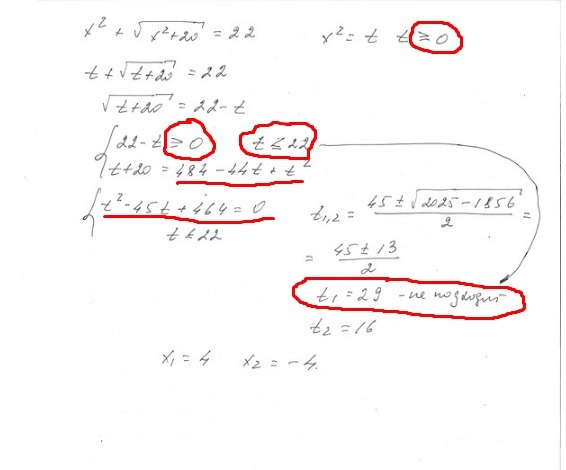 x² + √(x²+20) = 22    x² = t  t ≥ 0
t + √(t+20) = 22
√(t+20) = 22 - t
{ 22 - t ≥ 0    t ≤ 22
t + 20 = 484 - 44t + t²
{ t² - 45t + 464 = 0    t₁,₂ = (45 ± √(2025 - 1856))/2 =
t ≤ 22    = (45 ± 13)/2
t₁ = 29 - не подходит
t₂ = 16
x₁ = 4    x₂ = -4.